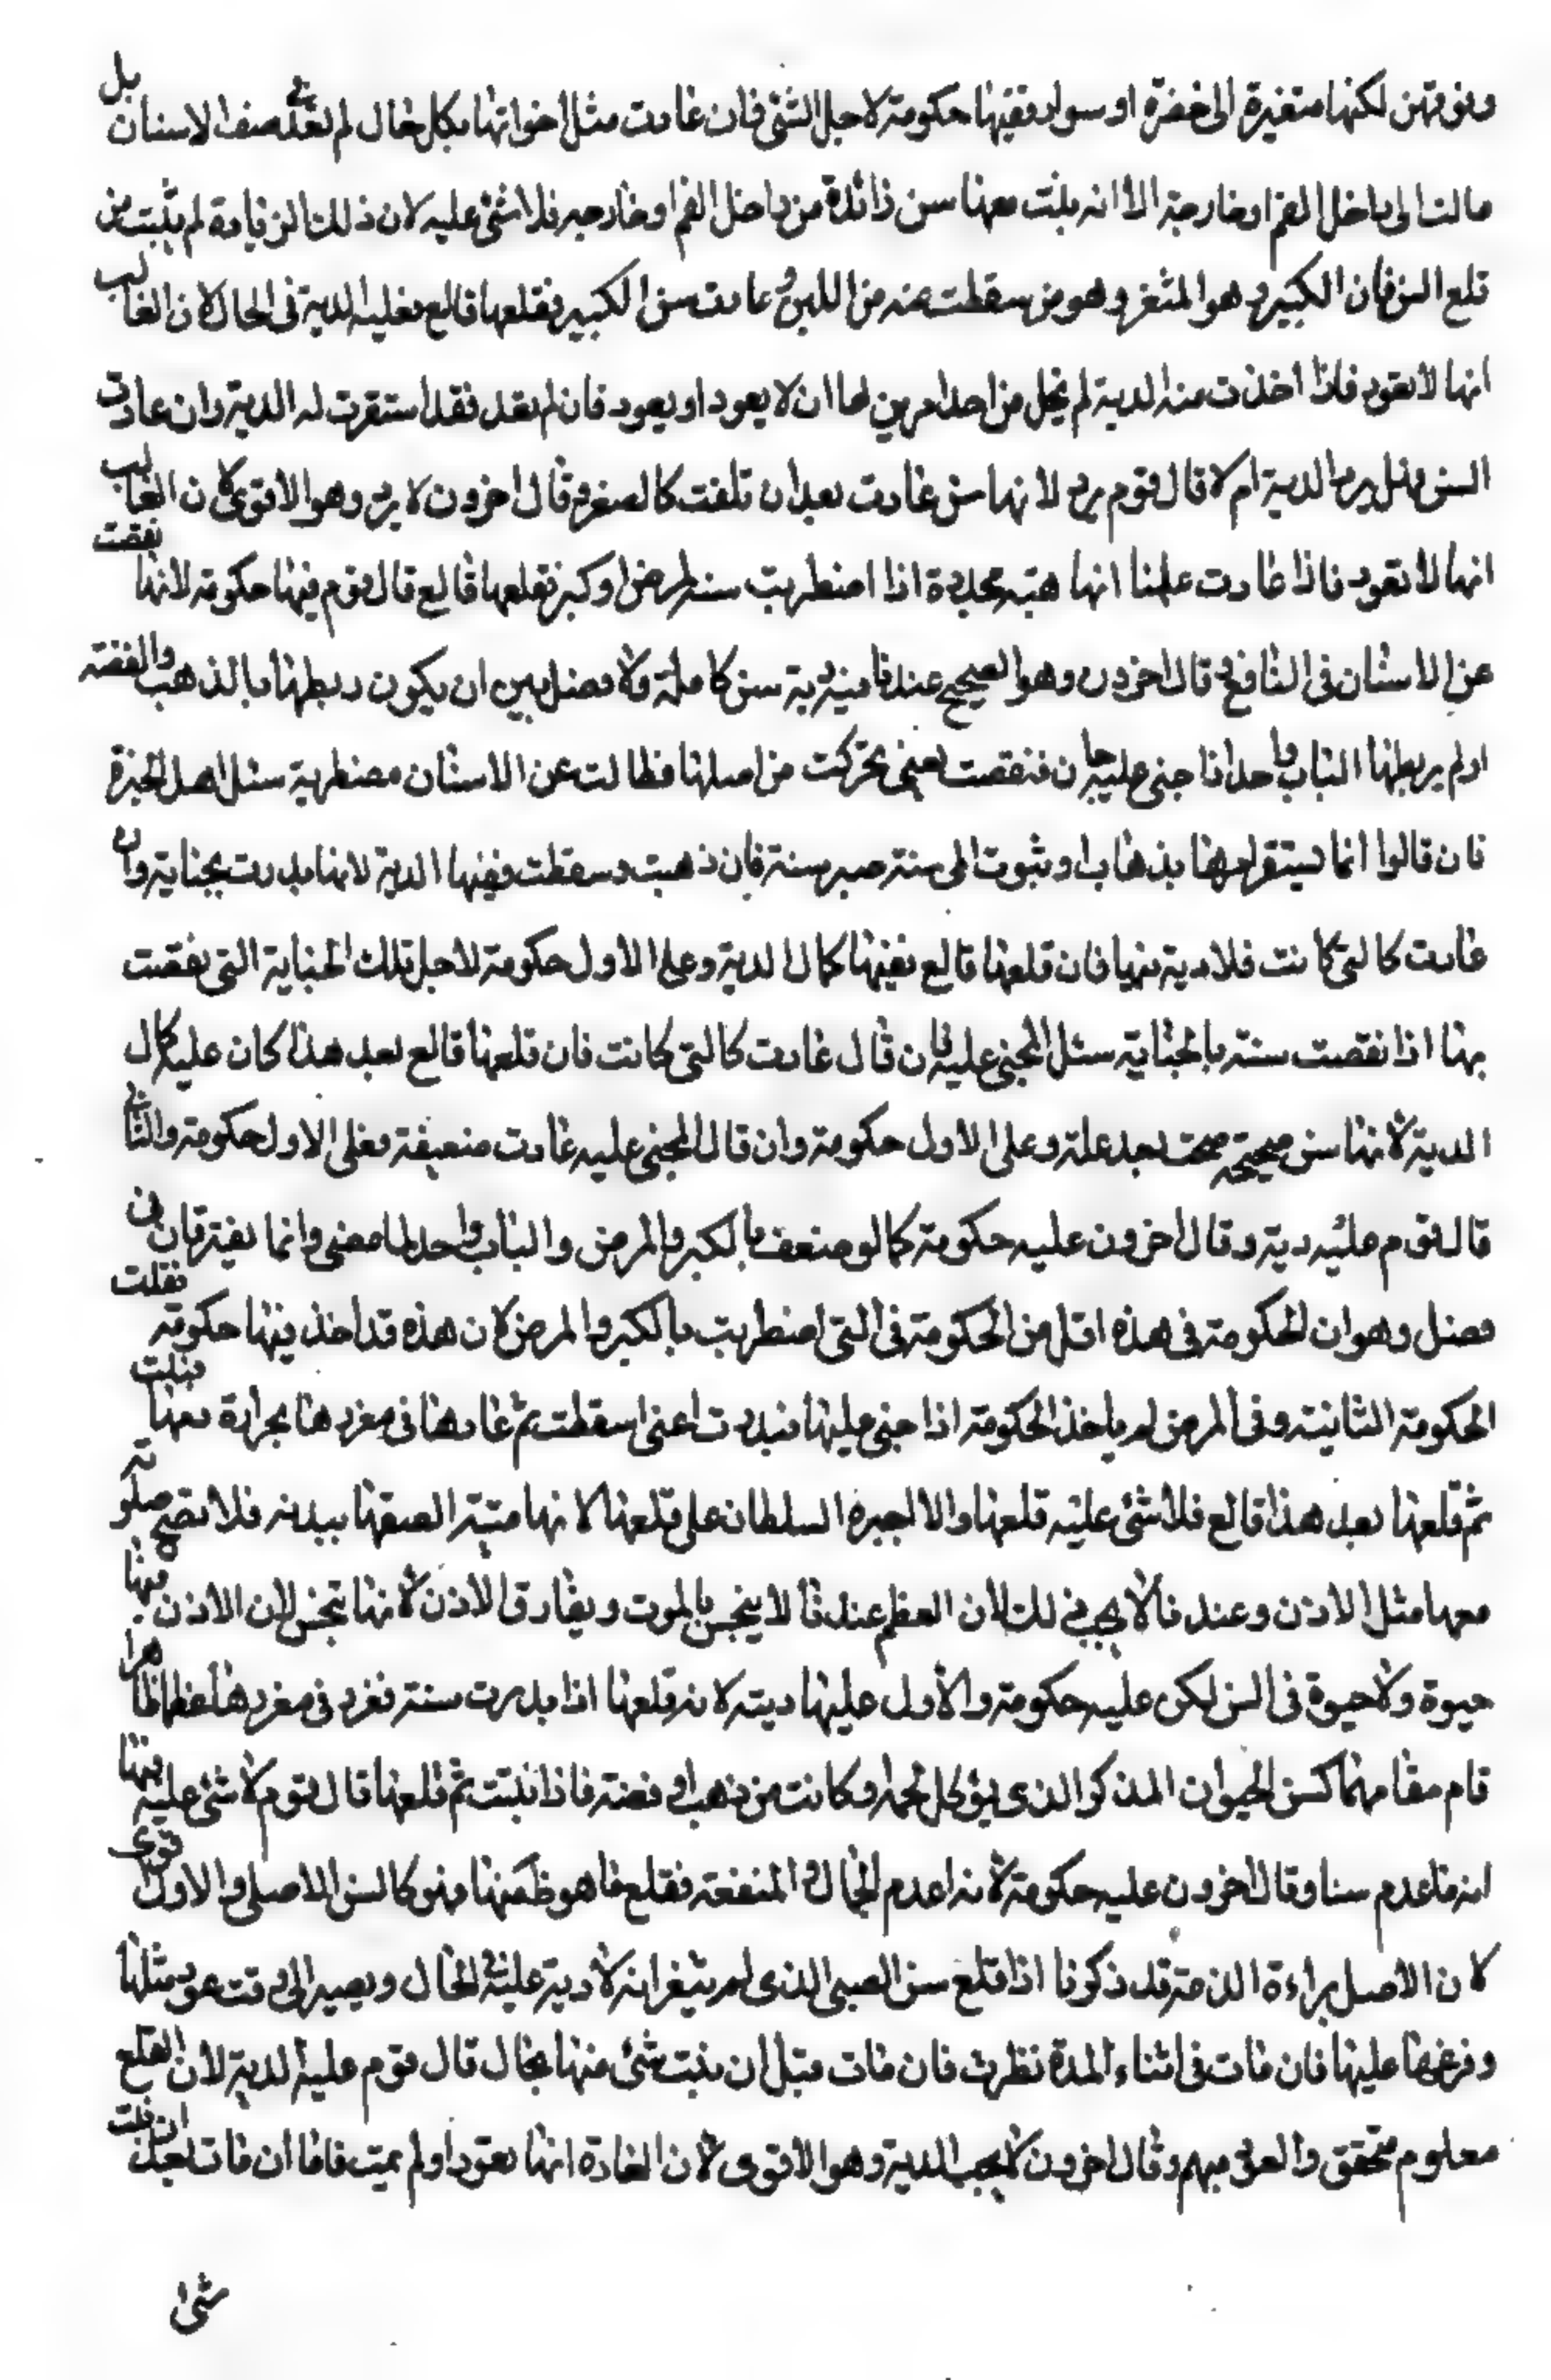 وفوقهن لكنها متغيرة الى خضرة او سواد ففيها حكومة لاجل الشئ فان عادت مثل اخواتها بكل حال لم تعد فى صف الاسنان بل
مالت الى داخل الفم او خارجه الا انه ينبت معها سن زائدة من داخل الفم او خارجه فلا شئ عليه لان ذلك الزيادة لم ينبت من
قلع السن فان الكبير وهو المثغر وهو من سقطت عنه من اللبن و عادت سن الكبير فقلعها قالع فعليه الدية فى الحال لان الغالب
انها لا تعود فاذا اخذت منه الدية لم يخل من احد امرين اما ان لا يعود او يعود فان لم يعد فقد استقرت له الدية وان عادت
السن فهل يرد الدية ام لا قال قوم يرد لانها سن عادت بعد ان تلفت كالصغير وقال اخرون لا يرد وهو الاقوى لان الغالب
انها لا تعود فاذا عادت علمنا انها هبة مجددة اذا اضطربت سنه لمرض او كبر فقلعها قالع قال قوم فيها حكومة لانها نقصت
عن الاسنان فى المنافع وقال اخرون وهو الصحيح عندنا فيه دية سن كاملة ولا فصل بين ان يكون ربطها بالذهب والفضة
او لم يربطها الباب واحد اذا جنى عليه جان فنغضت يعنى تحركت من اصلها فطالت عن الاسنان مضطربة سئل اهل الخبرة
فان قالوا انما يستقر امرها بذهاب او ثبوت الى سنة صبر سنة فان ذهبت وسقطت ففيها الدية لانها بدرت بجنايته وان
عادت كالتى كانت فلا دية فيها فان قلعها قالع ففيها كمال الدية وعلى الاول حكومة لاجل تلك الجناية التى نغضت
بها اذا نغضت سنه بالجناية سئل المجنى عليه فان قال عادت كالتى كانت فان قلعها قالع بعد هذا كان عليه كمال
الدية لانها سن صحيحة صحت بعد علة وعلى الاول حكومة وان قال المجنى عليه عادت ضعيفة فعلى الاول حكومة والثانى
قال قوم عليه دية وقال اخرون عليه حكومة كما لو ضعف بالكبر والمرض والباب واحد لما مضى وانما يفترقان فى
فصل وهو ان الحكومة فى هذه اقل من الحكومة فى التى اضطربت بالكبر والمرض لان هذه قد اخذ فيها حكومة فقلت
الحكومة الثانية وفى المرض لم ياخذ الحكومة اذا جنى عليها فندرت اعنى سقطت ثم عادها فى مغرزها بحرارة دمها فنبتت
ثم قلعها بعد هذا قالع فلا شئ عليه قلعها والا اجبره السلطان على قلعها لانها ميتة الصقها ببدنه فلا تصح صلوته
معها مثل الاذن وعندنا لا يجب ذلك لان العظم عندنا لا ينجس بالموت ويفارق الاذن لانها تنجس لان الاذن فيها
حيوة ولا حيوة فى السن لكن عليه حكومة والاول عليها دية لانه قلعها اذا بدرت سنه فغرز فى مغرزها عظما طاهرا
قام مقامها كسن الحيوان المذكو الذى يؤكل لحمه او كانت من ذهب او فضة فاذا نبتت ثم قلعها قال قوم لا شئ عليه فيها
انه ما عدم سنا وقال اخرون عليه حكومة لانه اعدم الجمال والمنفعة فقلع ما هو ظكمها فهو كالسن الاصلى والاول قوى
لان الاصل براءة الذمة قد ذكرنا اذا قلع سن الصبى الذى لم يثغر انه لا دية عليه فى الحال ويصبر الى وقت عود مثلها
وفرغها عليها فان مات فى اثناء المدة نظرت فان مات قبل ان ينبت شئ منها بحال قال قوم عليه الدية لان القلع
معلوم متحقق والعود مبهم وقال اخرون لا يجب الدية وهو الاقوى لان العادة انها تعود او لم يمت فاما ان مات بعد ان نبت
شئ